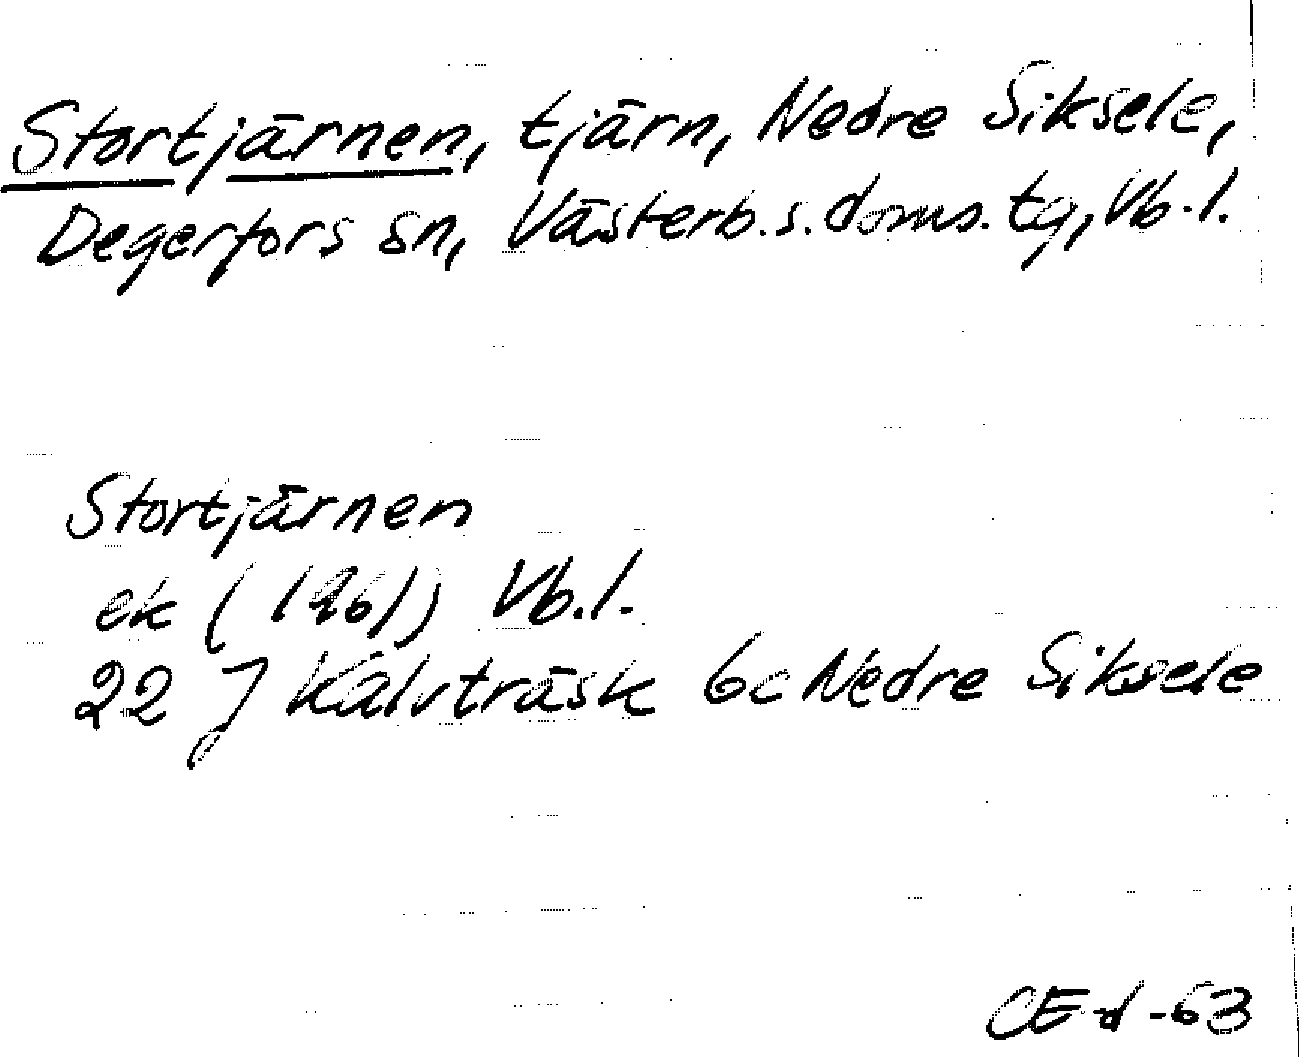 Stortjärnen, tjärn, Nedre Siksele,
Degerfors sn, Västerb.s.doms.tg, Vb.l.
Stortjärnen
ek (1961) Vb.l.
22 J Kalvträsk 6c Nedre Siksele
CE-d-63